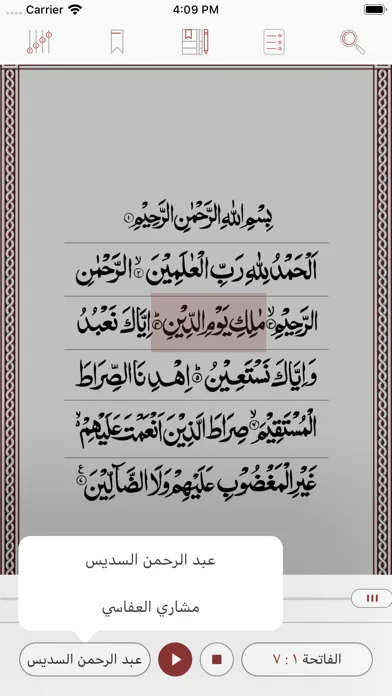 Carrier 4:09 PM
بِسْمِ اللهِ الرَّحْمٰنِ الرَّحِيْمِ ۝١
اَلْحَمْدُ لِلّٰهِ رَبِّ الْعٰلَمِيْنَ ۙ۝٢ الرَّحْمٰنِ
الرَّحِيْمِ ۙ۝٣ مٰلِكِ يَوْمِ الدِّيْنِ ؕ۝٤ اِيَّاكَ نَعْبُدُ
وَاِيَّاكَ نَسْتَعِيْنُ ؕ۝٥ اِهْدِنَا الصِّرَاطَ
الْمُسْتَقِيْمَ ۙ صِرَاطَ الَّذِيْنَ اَنْعَمْتَ عَلَيْهِمْ ۙ
غَيْرِ الْمَغْضُوْبِ عَلَيْهِمْ وَلَا الضَّآلِّيْنَ
عبد الرحمن السديس
مشاري العفاسي
الفاتحة ١ : ٧
عبد الرحمن السديس